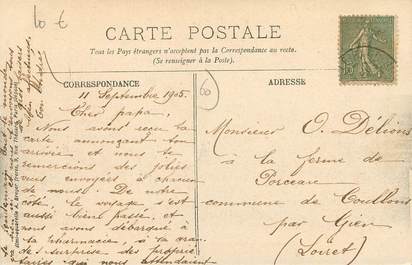 60 €
CARTE POSTALE
Tous les Pays étrangers n'acceptent pas la Correspondance au recto.
(Se renseigner à la Poste).
CORRESPONDANCE
ADRESSE
60
11 Septembre 1905.
Cher papa,
Nous avons reçu la
carte annonçant ton
arrivée et nous te
remercions des jolies
vues envoyées à chacun
de nous. De notre
côté, le voyage s'est
aussi bien passé, et
nous avons débarqué à
la pharmacie, à la gran
de surprise des proprié
taires qui nous attendaient
Monsieur O. Délions
à la ferme de
Porceau
commune de Coullons
par Gien
(Loiret)